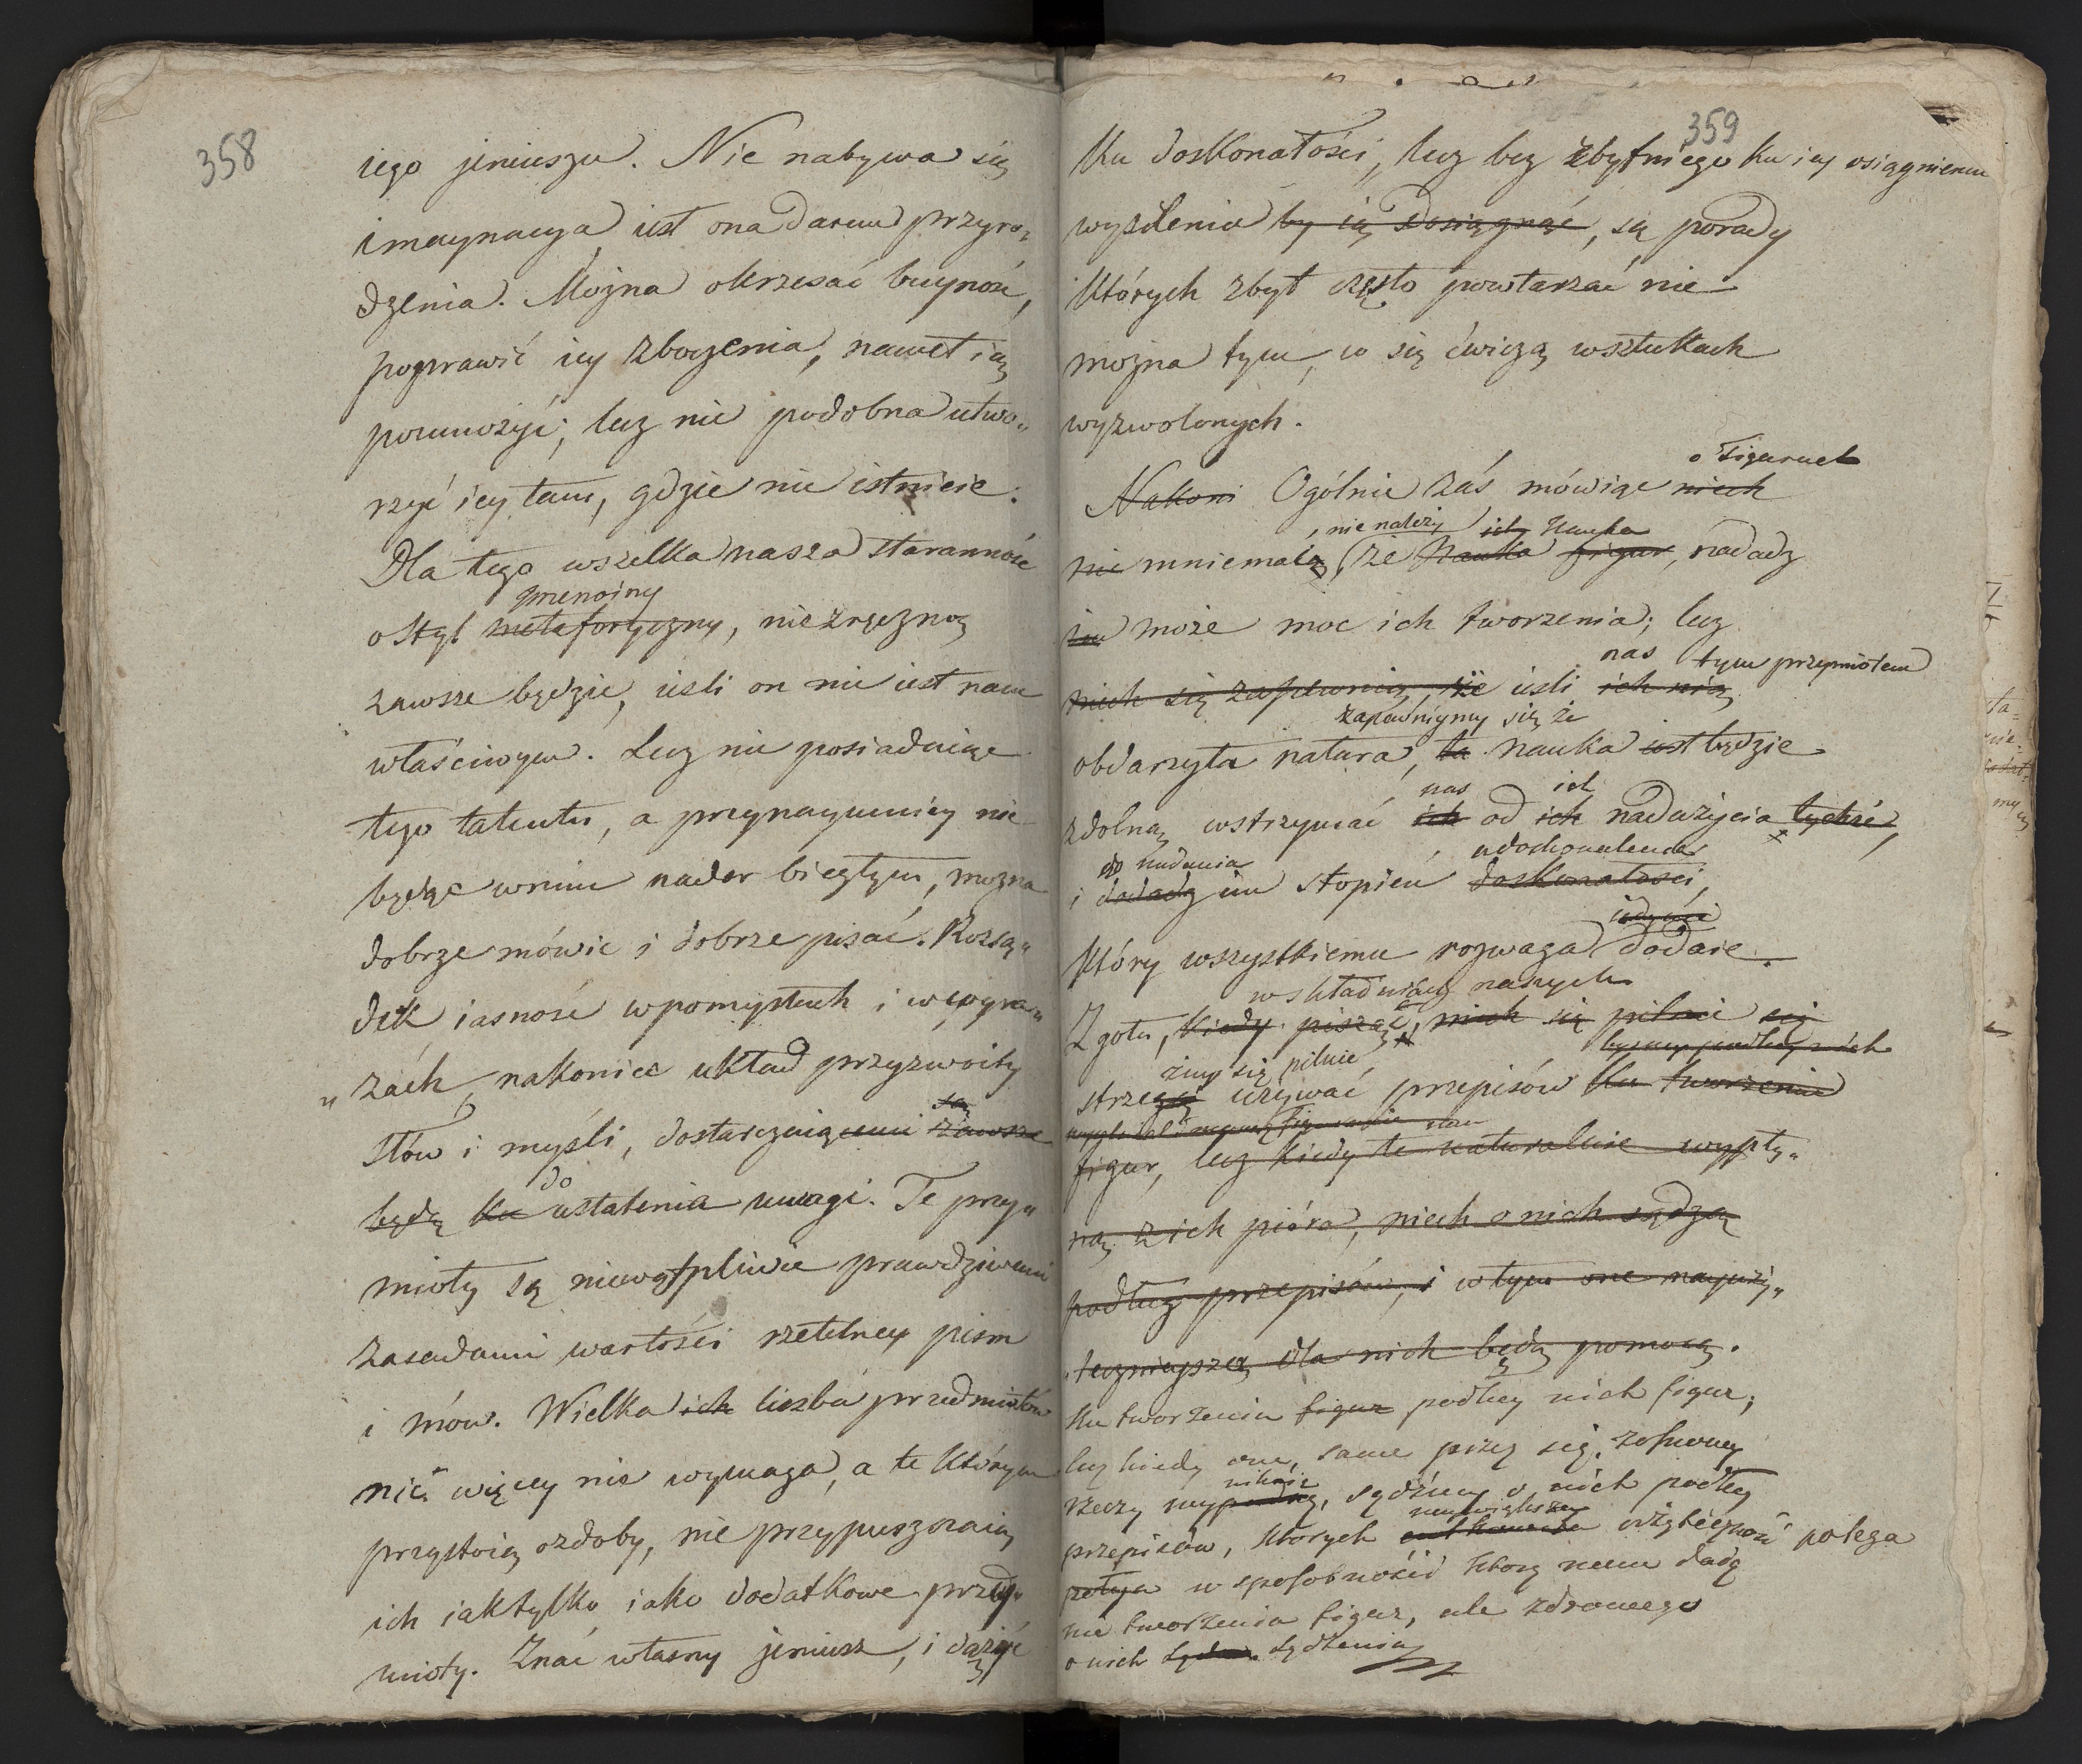 358
iego jeniuszu. Nie nabywa się
imaynacya, iest ona darem przyro„
dzenia. Można okrzesać buyność,
poprawić iey zboczenia, nawet ią
pomnożyć; lecz nie podobna utwo„
rzyć iey tam, gdzie nie istnieie.
Dla tego wszelka nasza staranność
przenośny
o Styl metaforyczny, niezręczną
zawsze będzie, ieśli on nie iest nam
właściwym. Lecz nie posiadaiąc
tego talentu, a przynaymniey nie
będąc w nim nader biegłym, można
dobrze mówić i dobrze pisać. Rozsą„
dek, iasność w pomysłach i w wyra„
„zach, nakoniec układ przyzwoity
są
Słów i myśli, dostarczaiącemi zawsze
do
będą ku ustalenia uwagi. Te przy„
mioty są niewątpliwie prawdziwemi
zasadami wartości rzetelney pism
i mów. Wielka ich liczba przedmiotów
nic więcey nie wymaga, a te którym
przystoią ozdoby, nie przypuszczaią
ich iak tylko iako dodatkowe przy„
mioty. Znać własny jeniusz, i dążyć
359
Ku doskonałości, lecz bez zbytniego ku iey osiągnieniu
wysilenia by ią dosiągnąć, są porady
Których zbyt często powtarzać nie
można tym, co się ćwiczą w sztukach
wyzwolonych.
o Figurach
Nakoni Ogólnie zaś mówiąc niech
, nie należy ich Nauka
nie mniemaią, że Nauka figur, nadadz
im może moc ich tworzenia; lecz
nas tym przymiotem
niech się zapewnią, że ieśli ich nią
zapewniymy się że
obdarzyła natura, ta nauka iest będzie
nas ich
zdolną wstrzymać ich od ich nadużycia tychże,
do nadania udoskonalenia
i dodadz im stopień doskonałości,
iedynie
Który wszystkiemu rozwaga dodaie.
w składaniach naszych
Z gotu, kiedy piszą, niech się pilnie się
żmy się pilnie
strzegą używać przepisów ku tworzeniu
figur, lecz kiedy te naturalnie wypły„
ną z ich pióra, niech o nich sądzą
podług przepisów, i w tym one nayuży„
„tecznieyszą dla nich będą pomocą.
Ku tworzeniu figur podług nich figur,
lecz kiedy one, same przez się, z osnowy
wynikną
rzeczy wypadną, sądźmy o nich podług
naywiększa
przepisów, których użyteczność polega
polega w sposobności którą nam dadzą
nie tworzenia figur, ale zdrowego
o nich sądzenia